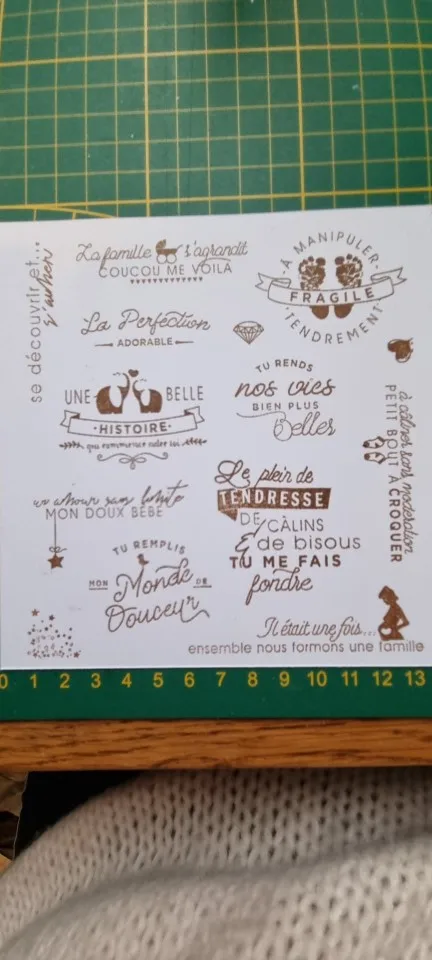 La famille s'agrandit
COUCOU ME VOILÀ
À MANIPULER
FRAGILE
TENDREMENT
se découvrir et...
s'aimer
La Perfection
ADORABLE
TU RENDS
nos vies
BIEN PLUS
Belles
UNE BELLE
HISTOIRE
qui commence notre ici
à câliner sans modération
PETIT BOUT À CROQUER
un amour sans limite
MON DOUX BÉBÉ
Le plein de
TENDRESSE
DE CÂLINS
& de bisous
TU ME FAIS
fondre
TU REMPLIS
MON Monde DE
Douceur
Il était une fois...
ensemble nous formons une famille
0 1 2 3 4 5 6 7 8 9 10 11 12 13